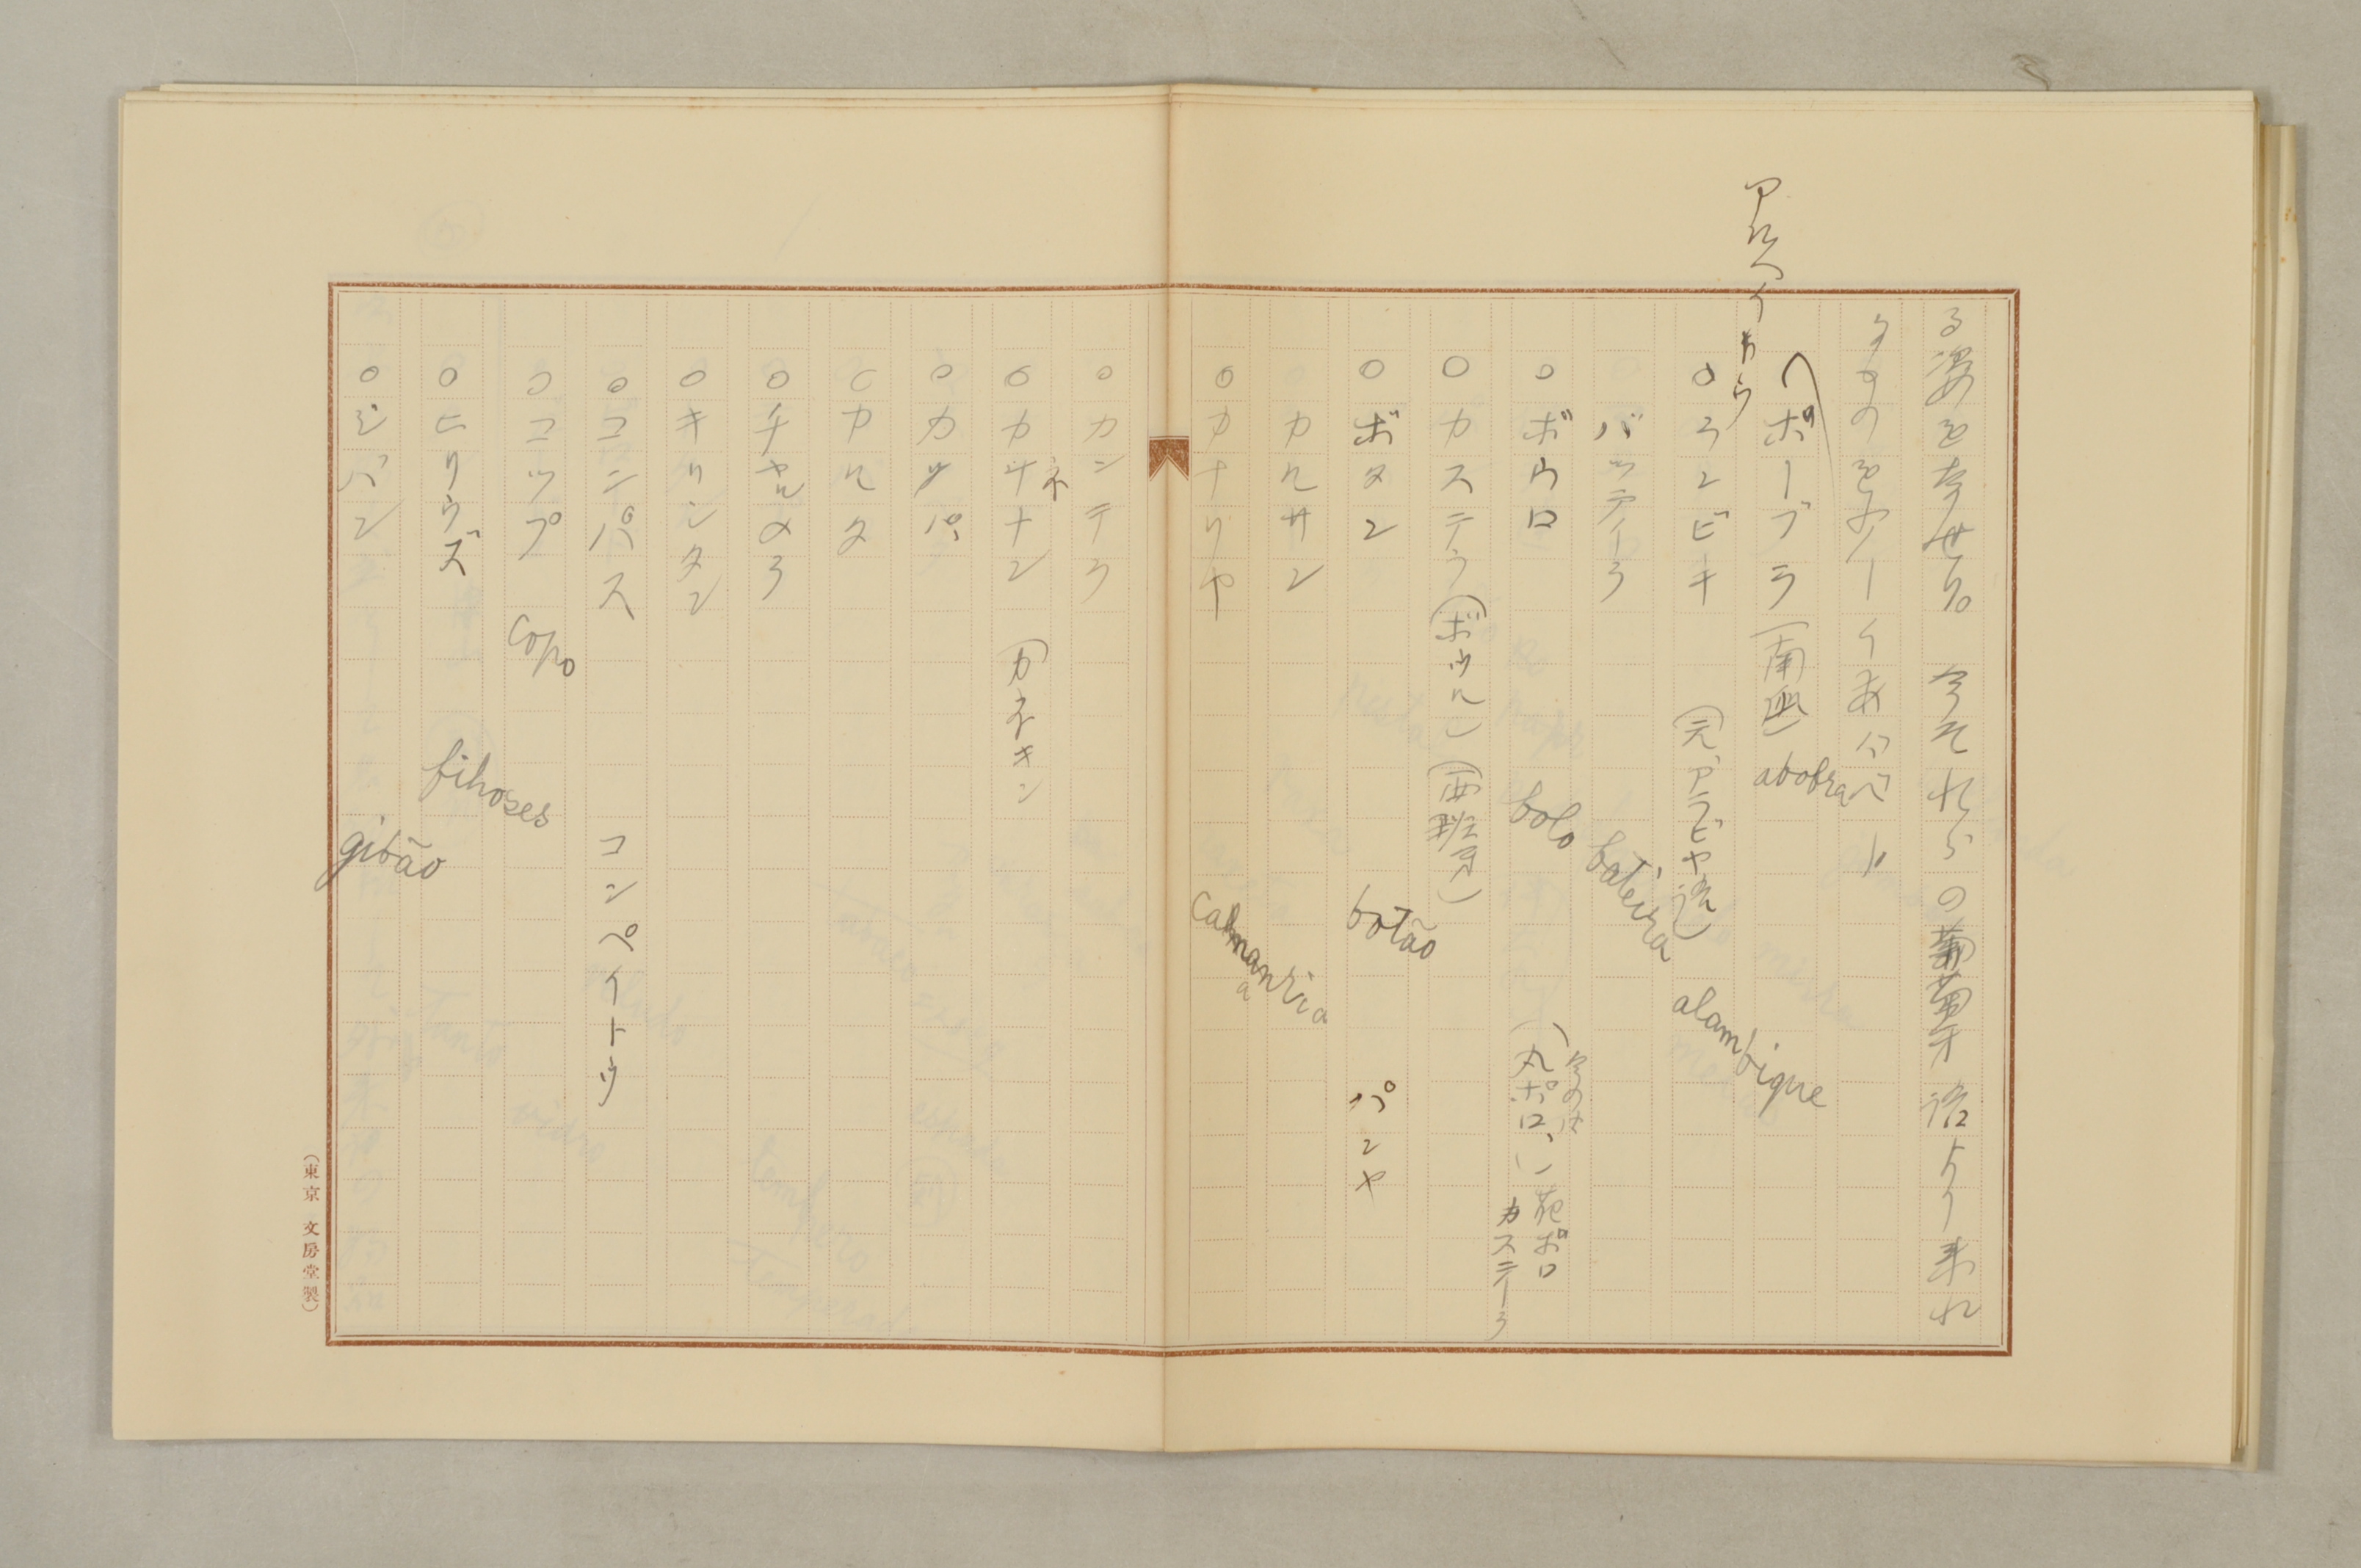 る姿を奪せり。今それらの葡萄牙語より来れ
るものをアーイあバベト
アルヘイカウ
ボーブラ(南瓜) abobra
○ランビキ(元、アラビヤ語) alambique
バッテイラ bateira
○ボウロ bolo (今のは丸ボロ、) 花ボロ カステーラ
○カステラ(ボウル)(西班牙)
○ボタン botão パンヤ
カルサン
○カナリヤ canmanria
○カンテラ
○カナキン(カネキン)
○カッパ
○カルタ
○チャルメラ
○キリンタン
○コンパス コンペイトウ
○コップ copo
○ヒリウズ filhoses
○ジバン gibão
(東京 文房堂製)